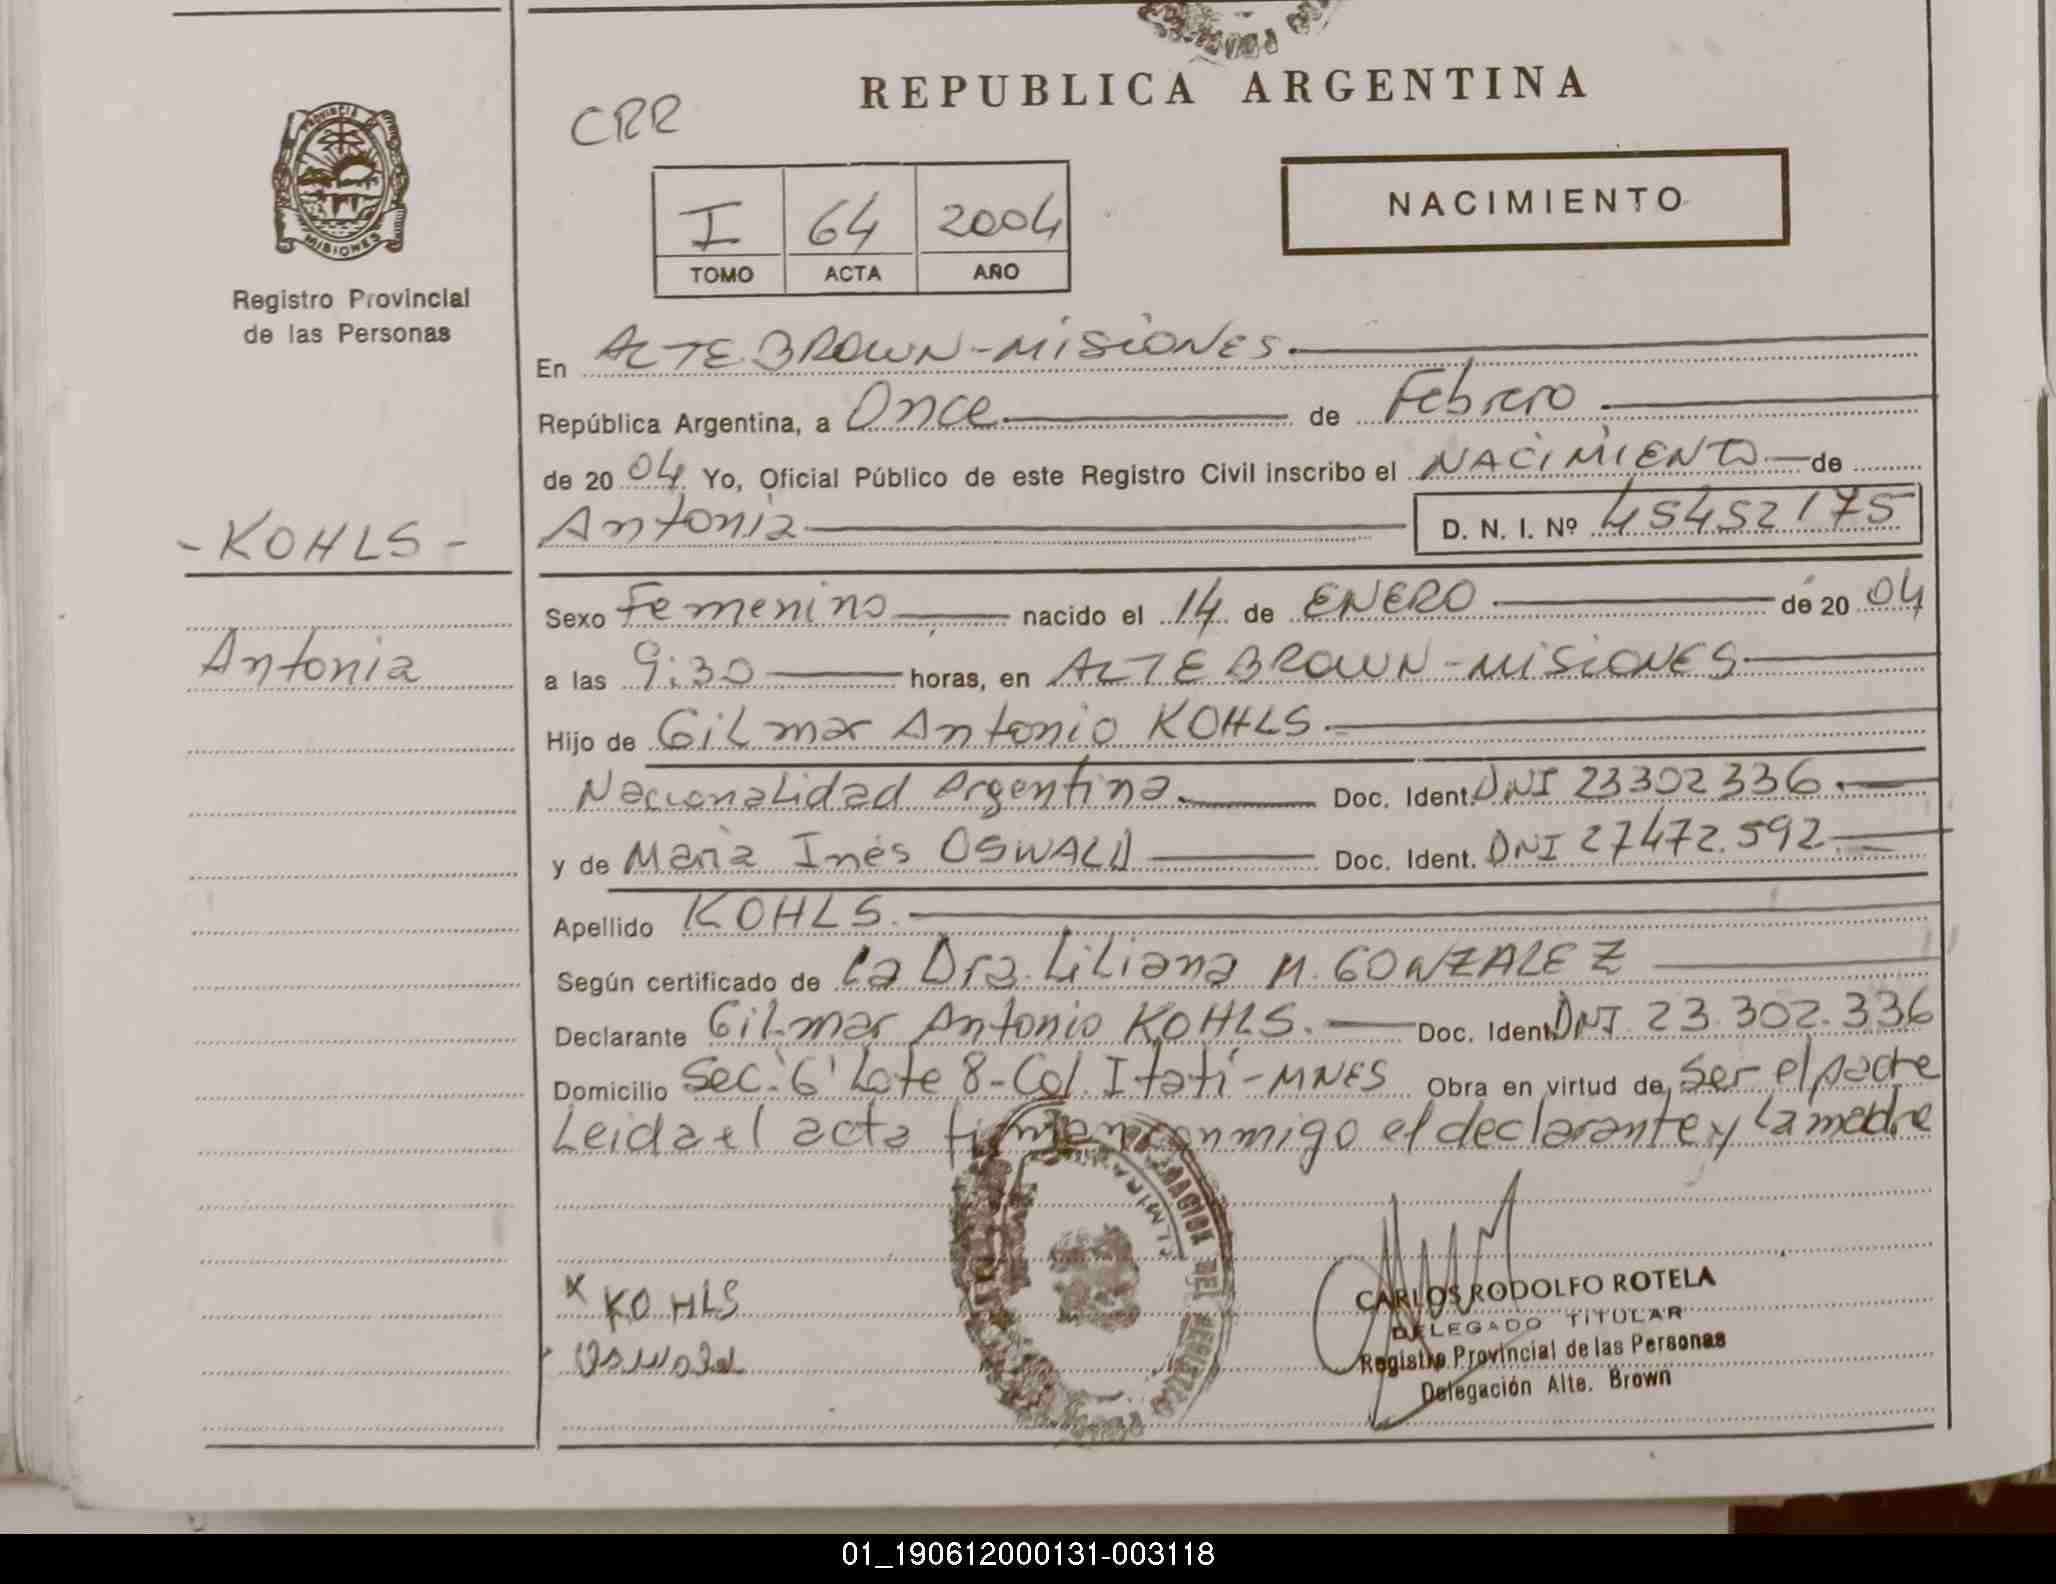 REPUBLICA ARGENTINA
CRR
NACIMIENTO
I 64 2004
TOMO ACTA AÑO
PROVINCIA DE
MISIONES
Registro Provincial
de las Personas
En ALTE BROWN-MISIONES.
República Argentina, a Once de Febrero
de 20 04 Yo, Oficial Público de este Registro Civil inscribo el NACIMIENTO de
Antonia D. N. I. Nº 45452175
-KOHLS-
Antonia
Sexo Femenino nacido el 14 de ENERO de 20 04
a las 9:30 horas, en ALTE BROWN-MISIONES
Hijo de Gilmar Antonio KOHLS.
Nacionalidad Argentina. Doc. Ident. DNI 23302336.
y de Maria Inés OSWALD Doc. Ident. DNI 27472.592
Apellido KOHLS.
Según certificado de la Dra. Liliana M. GONZALEZ
Declarante Gilmar Antonio KOHLS. Doc. Ident. DNI 23.302.336
Domicilio Sec. '6' Lote 8-Col. Itatí-MNES Obra en virtud de ser el padre
Leida el acta firman conmigo el declarante y la madre
x KOHLS
Oswald
CARLOS RODOLFO ROTELA
DELEGADO TITULAR
Registro Provincial de las Personas
Delegación Alte. Brown
01_190612000131-003118